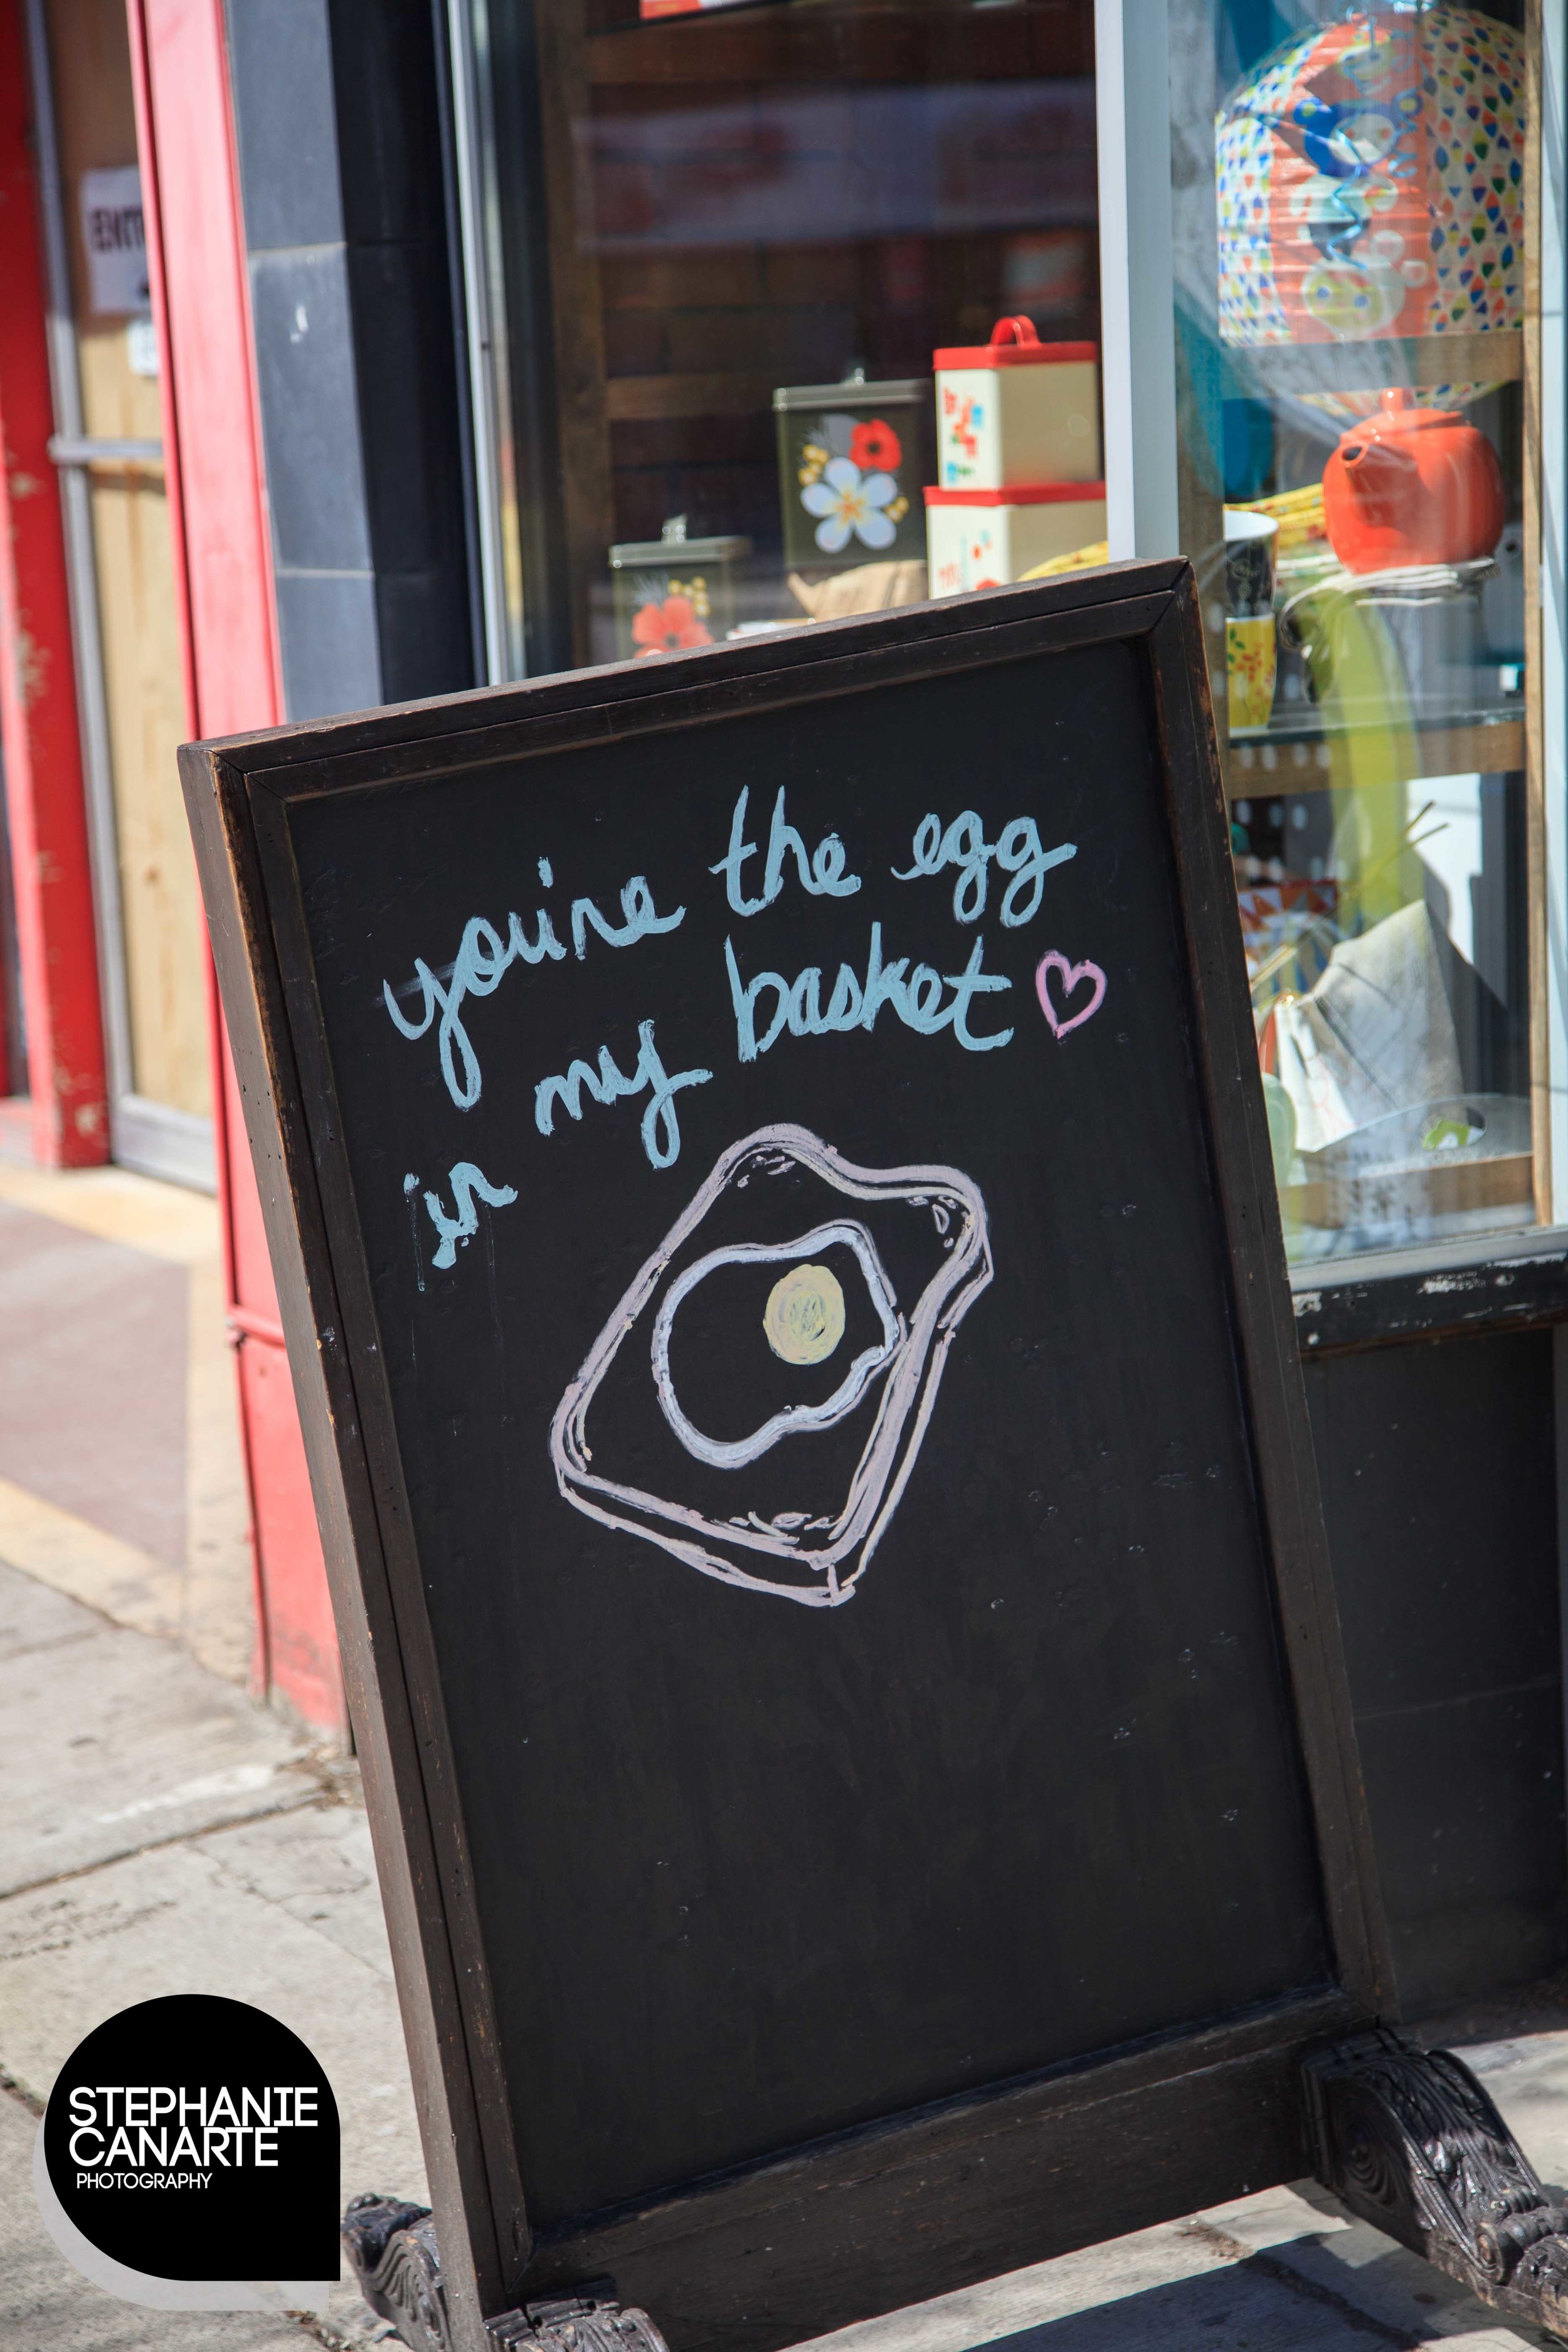 you're the egg
in my basket ♡
STEPHANIE
CANARTE
PHOTOGRAPHY